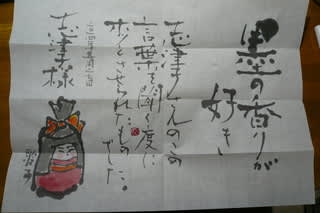 墨の香りが
好き
志津子さんのこの
言葉を聞く度に
ホッとさせられたもの
でした。
志津子様